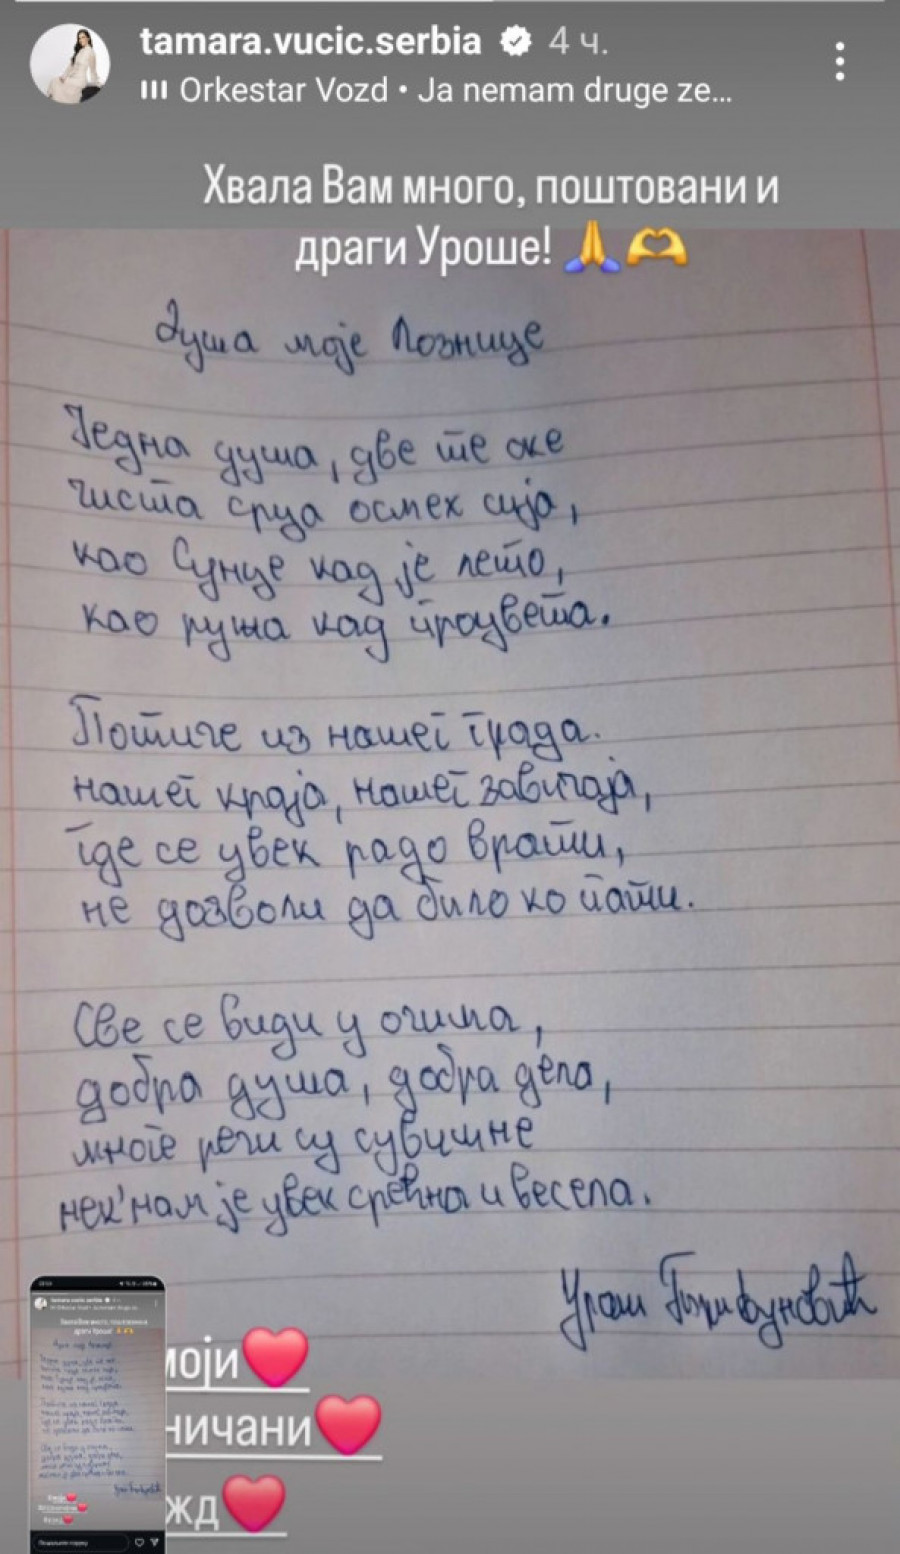 tamara.vucic.serbia 4 ч.
Orkestar Vozd • Ja nemam druge ze...
Хвала Вам много, поштовани и
драги Уроше! 🙏🫶
Душа моје Лознице
Једна душа, две те оке
чиста срца осмех сија,
као Сунце кад је лето,
као ружа кад процвета.
Потиче из нашег града.
нашег краја, нашег завичаја,
где се увек радо врати,
не дозволи да било ко пати.
Све се види у очима,
добра душа, добра дела,
многе речи су сувишне
нек'нам је увек срећна и весела.
Урош
моји❤️
ничани❤️
жд❤️